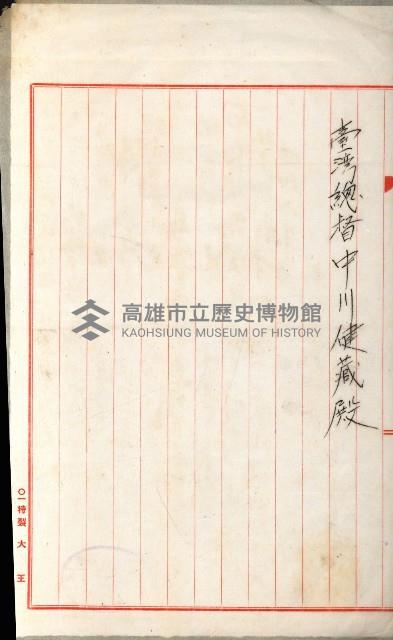 臺湾總督中川健藏殿
高雄市立歷史博物館
KAOHSIUNG MUSEUM OF HISTORY
〇一特製大王